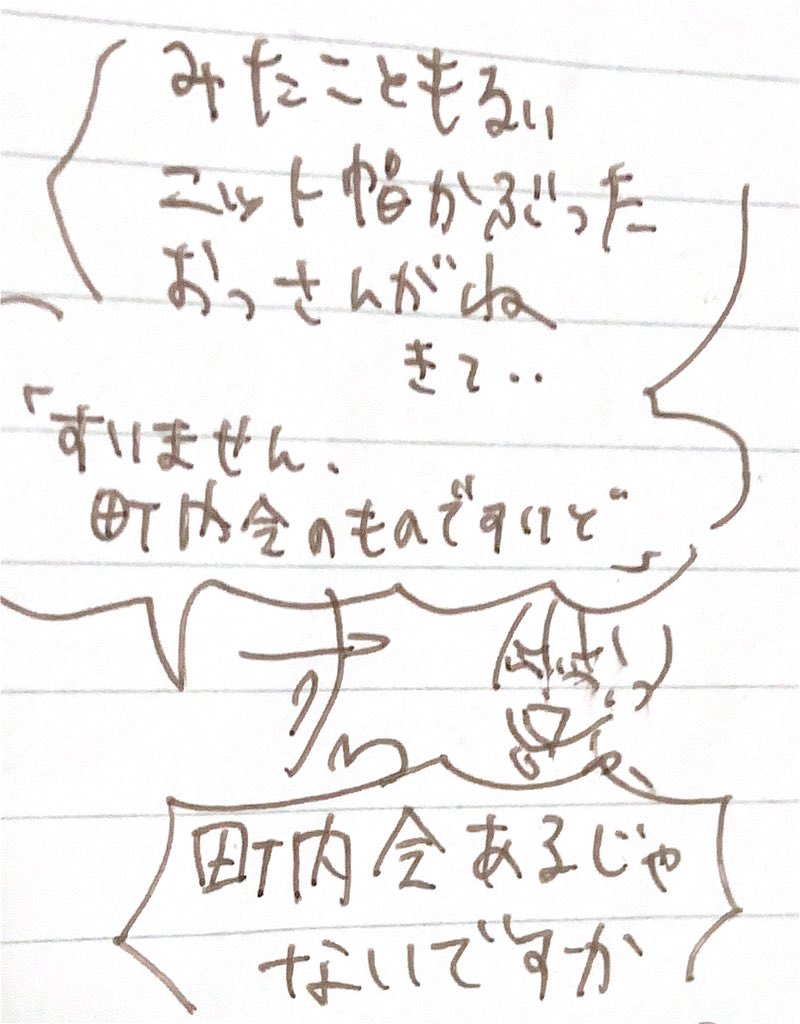 みたこともない
ニット帽かぶった
おっさんがね
きて‥
「すいません、
町内会のものですけど」
町内会あるじゃ
ないですか